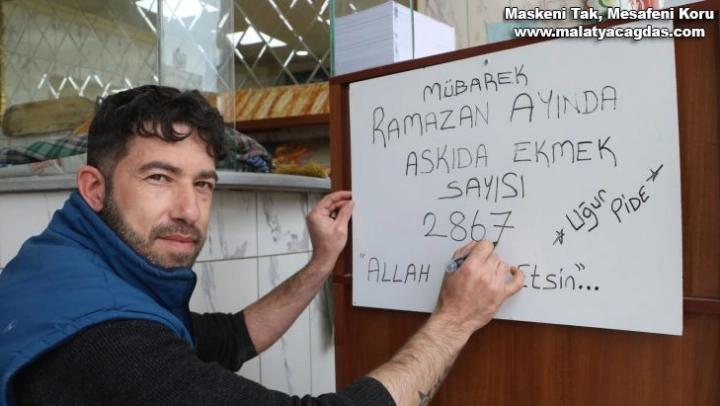 Maskeni Tak, Mesafeni Koru
www.malatyacagdas.com
MÜBAREK
RAMAZAN AYINDA
ASKIDA EKMEK
SAYISI
2867
★ Uğur PİDE ★
"ALLAH Etsin"...